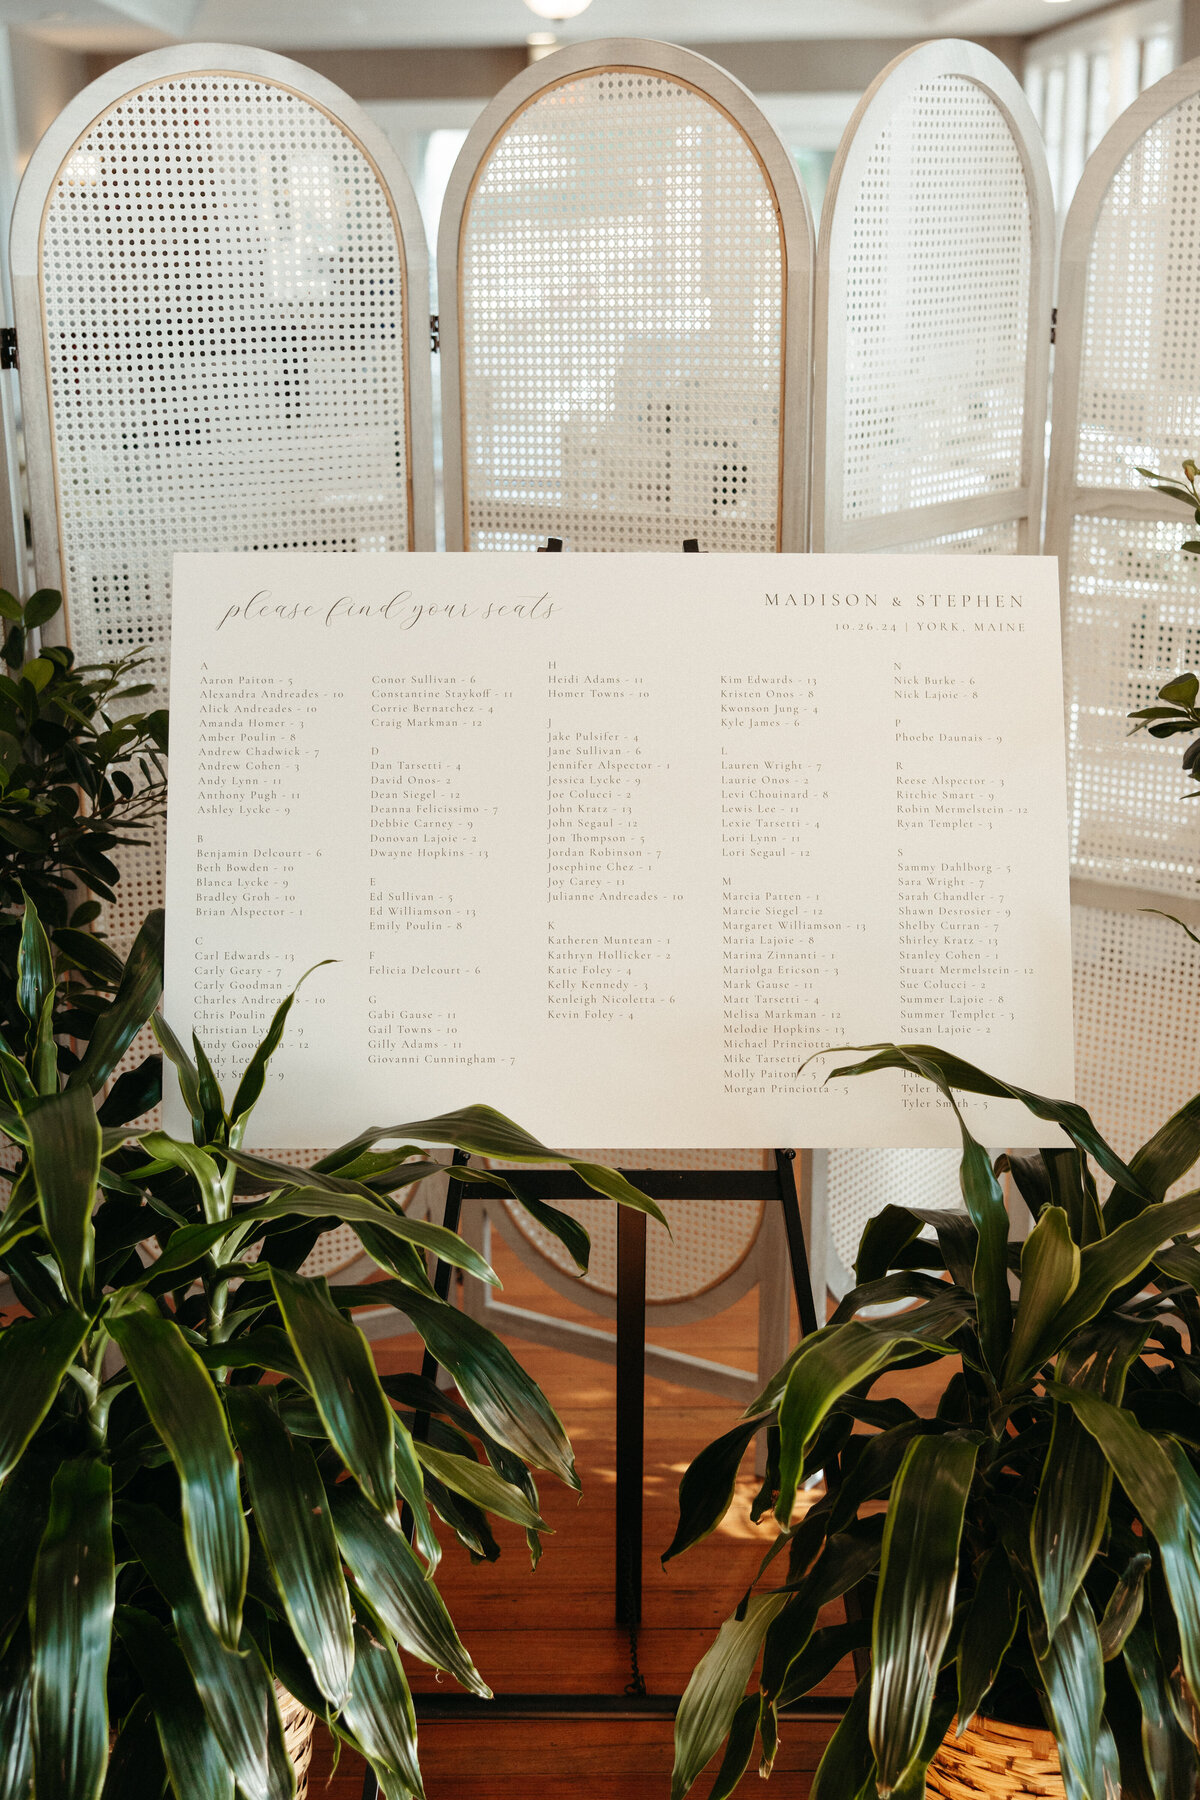 please find your seats
MADISON & STEPHEN
10.26.24 | YORK, MAINE
A
Aaron Paiton - 5
Alexandra Andreades - 10
Alick Andreades - 10
Amanda Homer - 3
Amber Poulin - 8
Andrew Chadwick - 7
Andrew Cohen - 3
Andy Lynn - 11
Anthony Pugh - 11
Ashley Lycke - 9
B
Benjamin Delcourt - 6
Beth Bowden - 10
Blanca Lycke - 9
Bradley Groh - 10
Brian Alspector - 1
C
Carl Edwards - 13
Carly Geary - 7
Carly Goodman -
Charles Andreades - 10
Chris Poulin -
Christian - 9
- 12
Lee
- 9
Conor Sullivan - 6
Constantine Staykoff - 11
Corrie Bernatchez - 4
Craig Markman - 12
D
Dan Tarsetti - 4
David Onos- 2
Dean Siegel - 12
Deanna Felicissimo - 7
Debbie Carney - 9
Donovan Lajoie - 2
Dwayne Hopkins - 13
E
Ed Sullivan - 5
Ed Williamson - 13
Emily Poulin - 8
F
Felicia Delcourt - 6
G
Gabi Gause - 11
Gail Towns - 10
Gilly Adams - 11
Giovanni Cunningham - 7
H
Heidi Adams - 11
Homer Towns - 10
J
Jake Pulsifer - 4
Jane Sullivan - 6
Jennifer Alspector - 1
Jessica Lycke - 9
Joe Colucci - 2
John Kratz - 13
John Segaul - 12
Jon Thompson - 5
Jordan Robinson - 7
Josephine Chez - 1
Joy Carey - 11
Julianne Andreades - 10
K
Katheren Muntean - 1
Kathryn Hollicker - 2
Katie Foley - 4
Kelly Kennedy - 3
Kenleigh Nicoletta - 6
Kevin Foley - 4
Kim Edwards - 13
Kristen Onos - 8
Kwonson Jung - 4
Kyle James - 6
L
Lauren Wright - 7
Laurie Onos - 2
Levi Chouinard - 8
Lewis Lee - 11
Lexie Tarsetti - 4
Lori Lynn - 11
Lori Segaul - 12
M
Marcia Patten - 1
Marcie Siegel - 12
Margaret Williamson - 13
Maria Lajoie - 8
Marina Zinnanti - 1
Mariolga Ericson - 3
Mark Gause - 11
Matt Tarsetti - 4
Melisa Markman - 12
Melodie Hopkins - 13
Michael Princiotta - 5
Mike Tarsetti - 13
Molly Paiton - 5
Morgan Princiotta - 5
N
Nick Burke - 6
Nick Lajoie - 8
P
Phoebe Daunais - 9
R
Reese Alspector - 3
Ritchie Smart - 9
Robin Mermelstein - 12
Ryan Templet - 3
S
Sammy Dahlborg - 5
Sara Wright - 7
Sarah Chandler - 7
Shawn Desrosier - 9
Shelby Curran - 7
Shirley Kratz - 13
Stanley Cohen - 1
Stuart Mermelstein - 12
Sue Colucci - 2
Summer Lajoie - 8
Summer Templet - 3
Susan Lajoie - 2
Tyler
Tyler Smith - 5